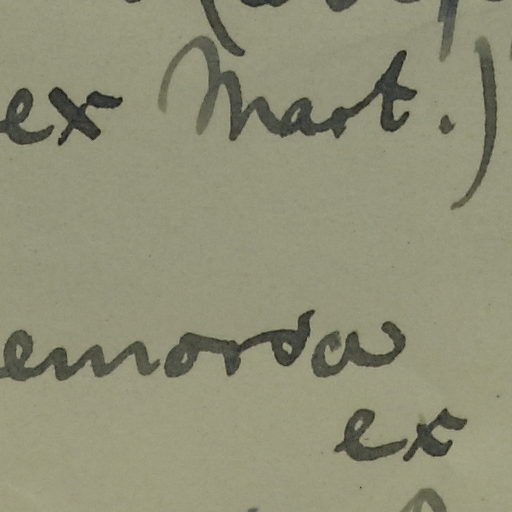 ex Mart.)
emorsa
ex